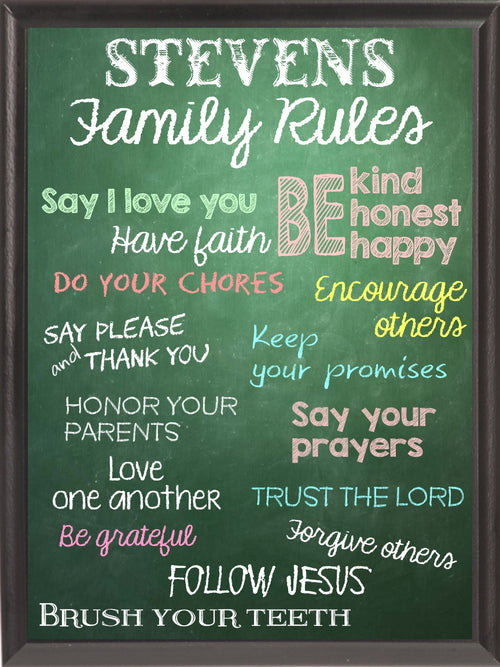 STEVENS
Family Rules
Say I love you
BE
kind
honest
happy
Have faith
DO YOUR CHORES
Encourage
others
SAY PLEASE
and THANK YOU
Keep
your promises
HONOR YOUR
PARENTS
Say your
prayers
Love
one another
TRUST THE LORD
Be grateful
Forgive others
FOLLOW JESUS
BRUSH YOUR TEETH